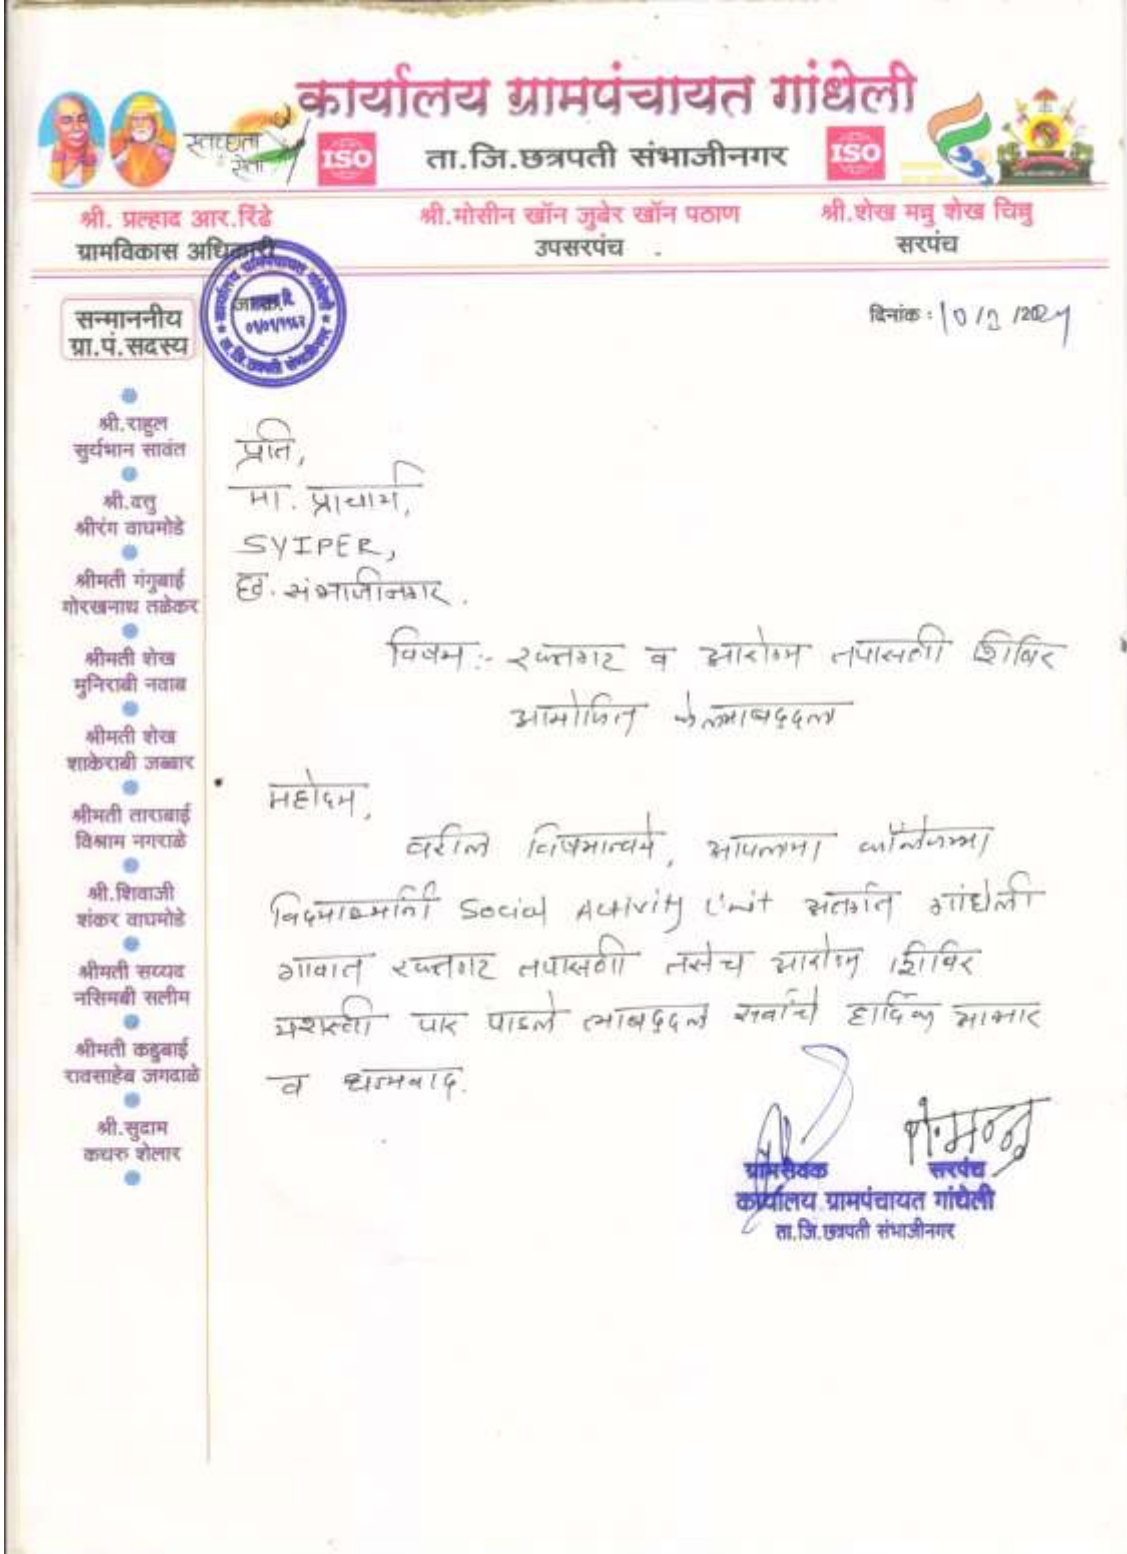 कार्यालय ग्रामपंचायत गांधेली
स्वच्छता
सेवा
ISO
ता.जि.छत्रपती संभाजीनगर
ISO
श्री. प्रल्हाद आर.रिंढे
ग्रामविकास अधिकारी
श्री.मोसीन खॉन जुबेर खॉन पठाण
उपसरपंच
श्री.शेख मन्नु शेख चिन्नु
सरपंच
कार्यालय ग्रामपंचायत गांधेली
ता.जि.छत्रपती संभाजीनगर
दिनांक :
सन्माननीय
ग्रा.पं.सदस्य
श्री.राहुल
सुर्यभान सावंत
श्री.दत्तु
श्रीरंग वाघमोडे
श्रीमती गंगुबाई
गोरखनाथ तळेकर
श्रीमती शेख
मुनिराबी नवाब
श्रीमती शेख
शाकेराबी जब्बार
श्रीमती ताराबाई
विश्राम नगराळे
श्री.शिवाजी
शंकर वाघमोडे
श्रीमती सय्यद
नसिमबी सलीम
श्रीमती कडुबाई
रावसाहेब जगदाळे
श्री.सुदाम
कचरु शेलार
प्रति,
मा. प्राचार्य,
SYIPER,
छ. संभाजीनगर.
विषय :- रक्तगट व आरोग्य तपासणी शिबिर
आयोजित केल्याबद्दल
महोदय,
वरील विषयान्वये, आपल्या कॉलेजच्या
विद्यार्थ्यांनी Social Activity Unit अंतर्गत गांधेली
गावात रक्तगट तपासणी तसेच आरोग्य शिबिर
यशस्वी पार पाडले त्याबद्दल सर्वांचे हार्दिक आभार
व धन्यवाद.
ग्रामसेवक सरपंच
कार्यालय ग्रामपंचायत गांधेली
ता.जि.छत्रपती संभाजीनगर